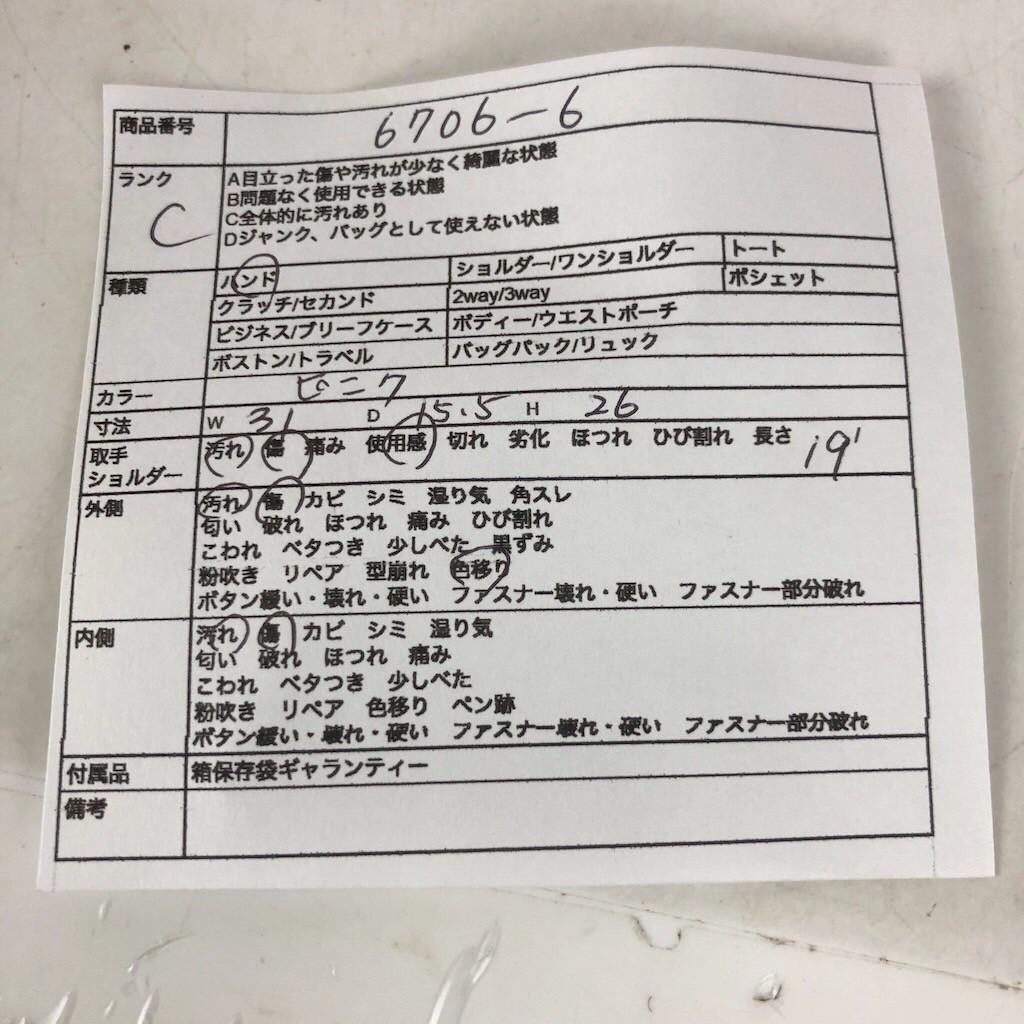 商品番号 6706-6
ランク C
A目立った傷や汚れが少なく綺麗な状態
B問題なく使用できる状態
C全体的に汚れあり
Dジャンク、バッグとして使えない状態
種類 ハンド ショルダー/ワンショルダー トート
クラッチ/セカンド 2way/3way ポシェット
ビジネス/ブリーフケース ボディー/ウエストポーチ
ボストン/トラベル バッグパック/リュック
カラー ピンク
寸法 W 31 D 15.5 H 26
取手 汚れ 傷 痛み 使用感 切れ 劣化 ほつれ ひび割れ 長さ 19
ショルダー
外側 汚れ 傷 カビ シミ 湿り気 角スレ
匂い 破れ ほつれ 痛み ひび割れ
こわれ ベタつき 少しべた 黒ずみ
粉吹き リペア 型崩れ 色移り
ボタン緩い・壊れ・硬い ファスナー壊れ・硬い ファスナー部分破れ
内側 汚れ 傷 カビ シミ 湿り気
匂い 破れ ほつれ 痛み
こわれ ベタつき 少しべた
粉吹き リペア 色移り ペン跡
ボタン緩い・壊れ・硬い ファスナー壊れ・硬い ファスナー部分破れ
付属品 箱保存袋ギャランティー
備考